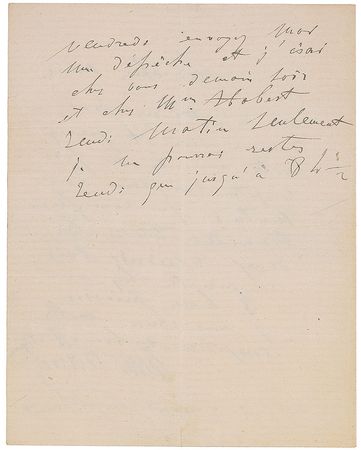 vendredi envoyez moi
une dépêche et j'irai
chez vous demain soir
et chez Mme
lundi matin seulement
je ne pourrai rester
lundi que jusqu'à 8 h ½